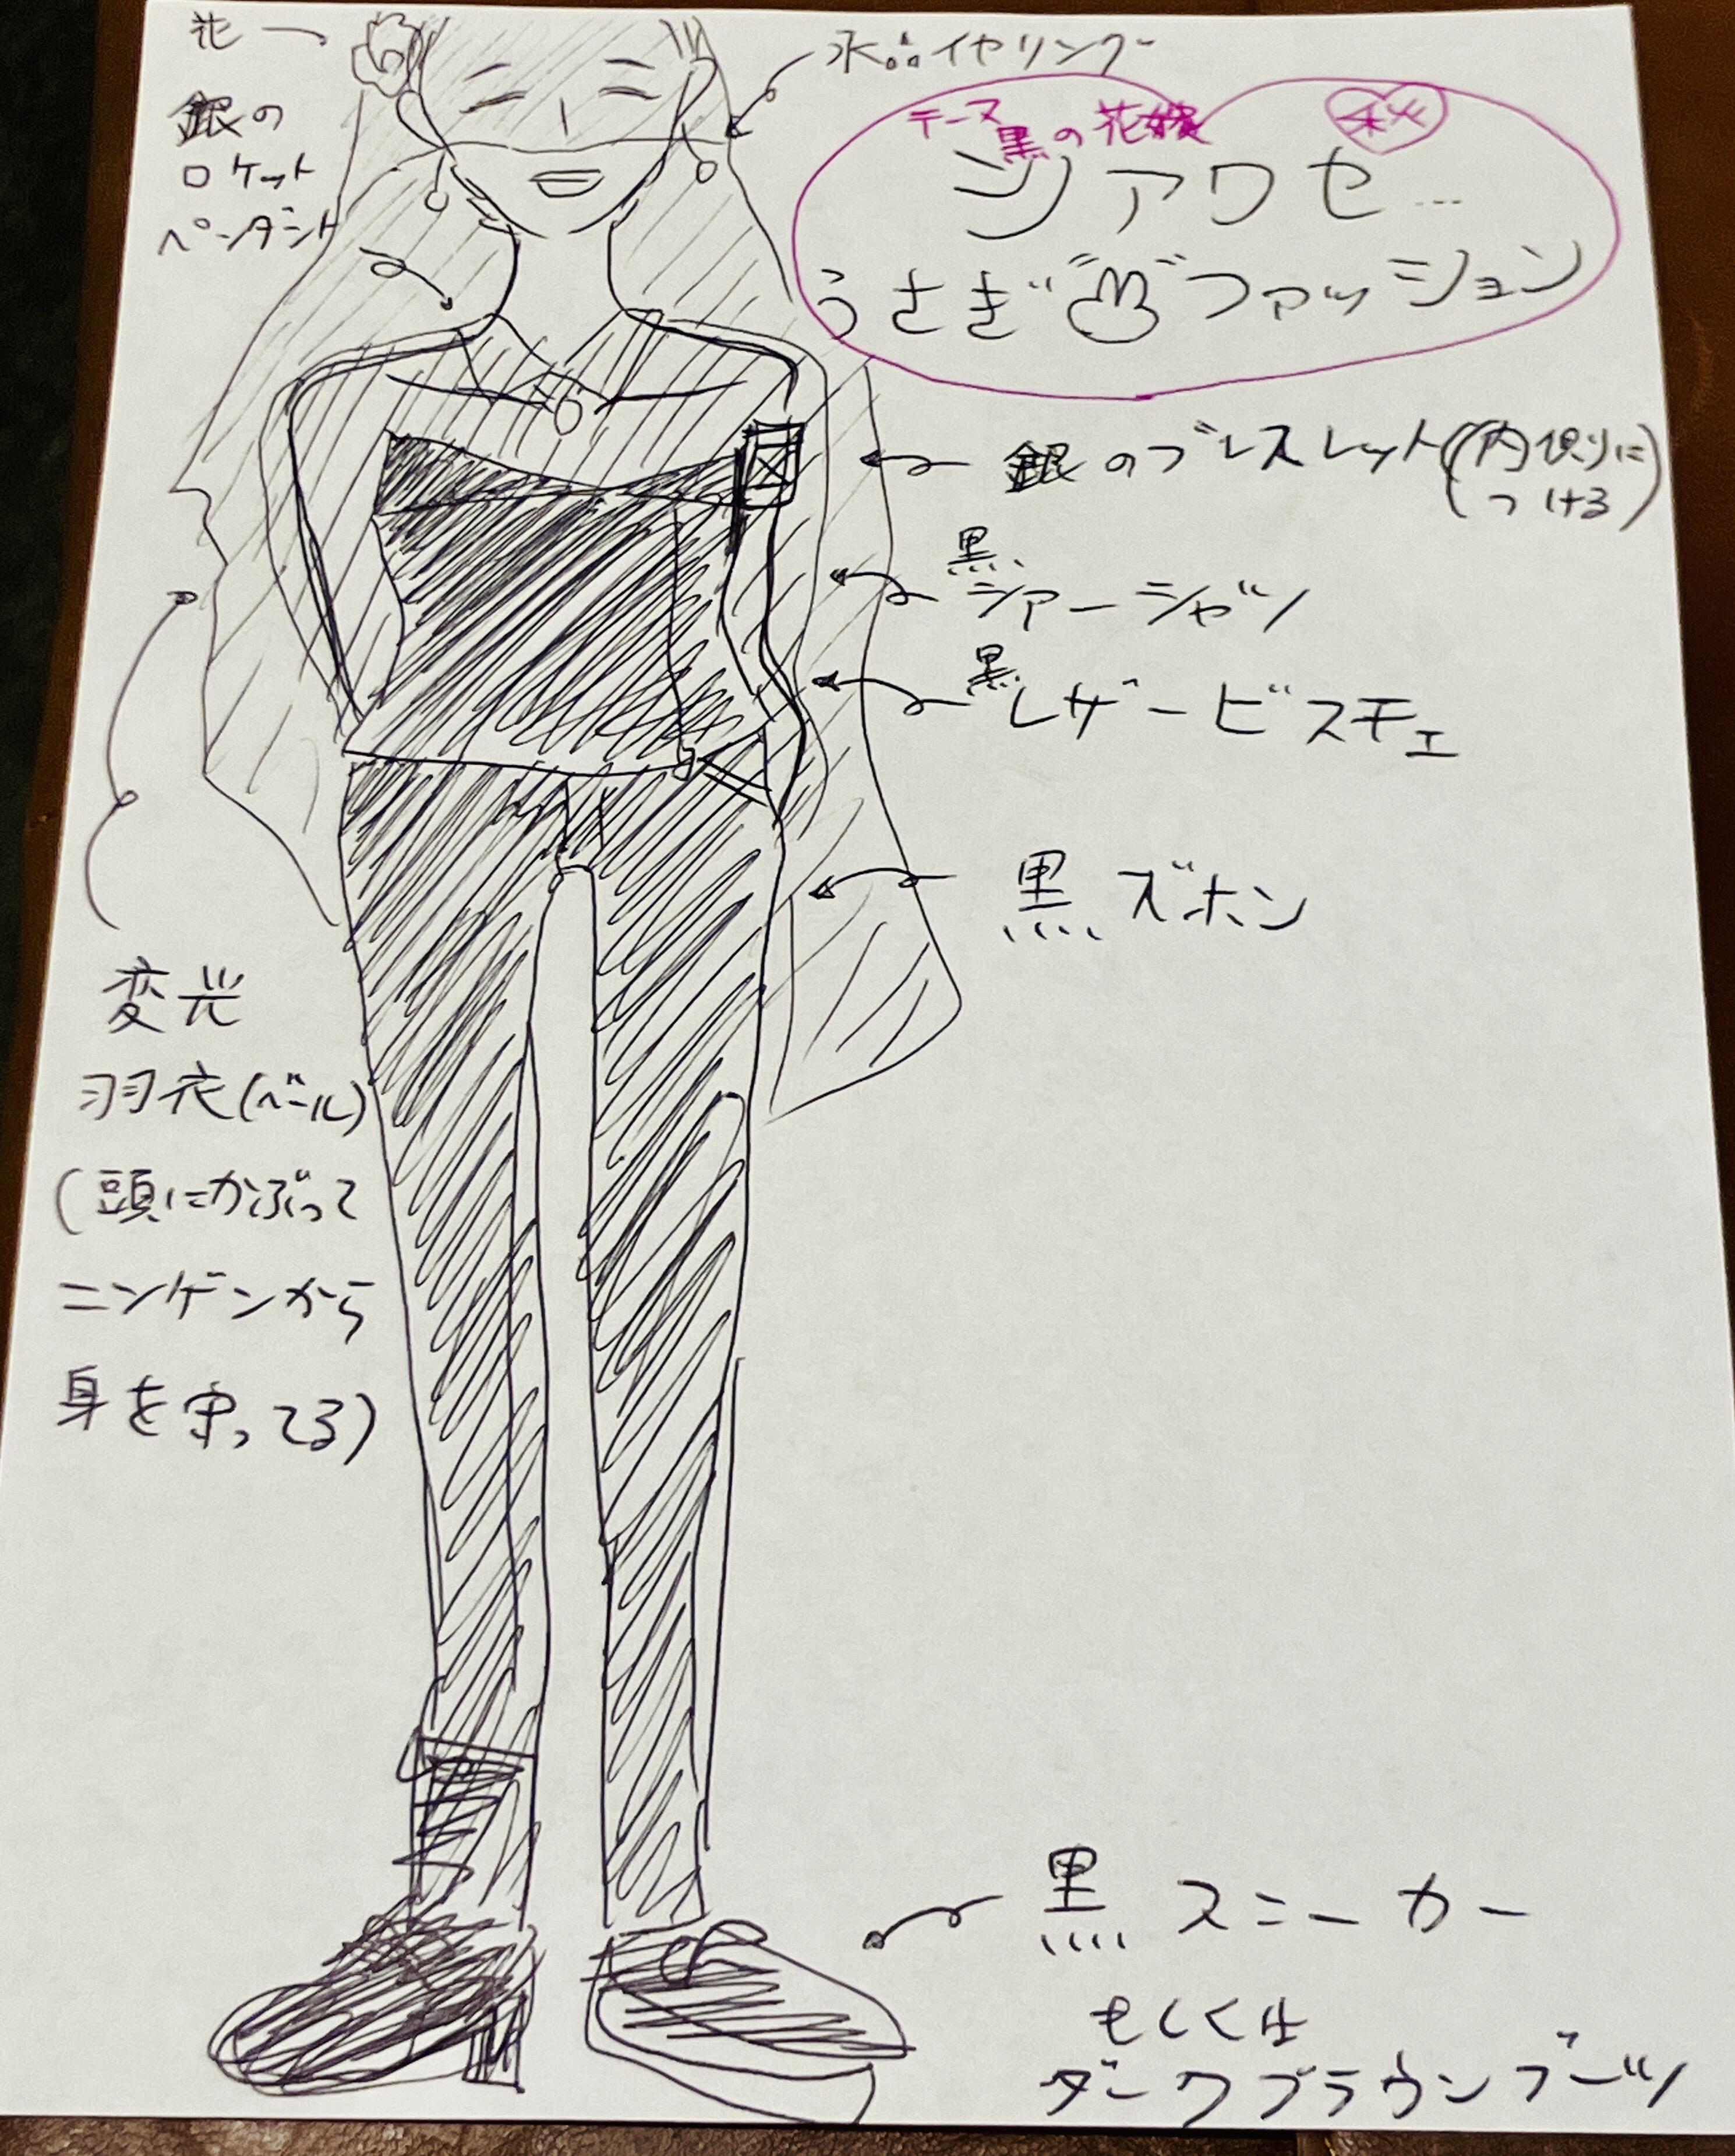 花
銀の
ロケット
ペンダント
水晶イヤリング
テーマ
黒の花嫁
秋
シアワセ…
うさぎファッション
銀のブレスレット(内側に
つける)
黒
シアーシャツ
黒
レザービスチェ
黒ズボン
変光
羽衣(ベール)
(頭にかぶって
ニンゲンから
身を守ってる)
黒スニーカー
もしくは
ダークブラウンブーツ